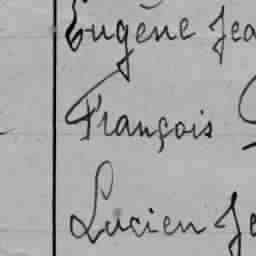 Eugène Jea
François
Lucien Je